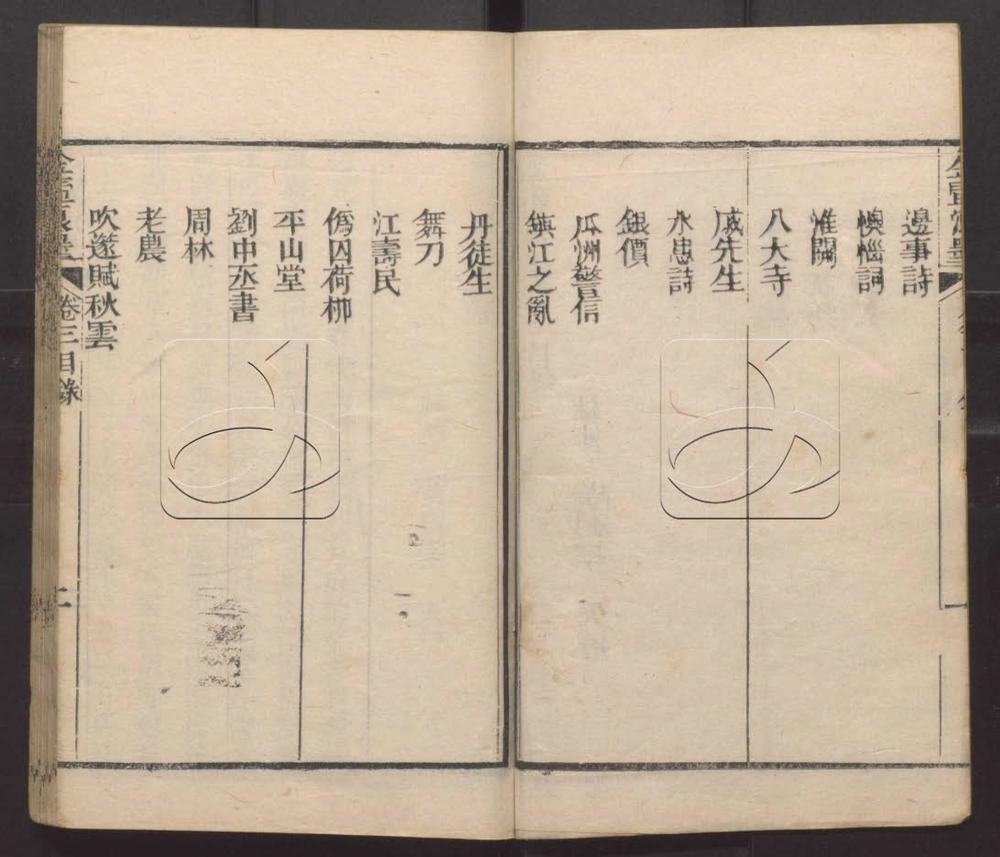 邊事詩
懊惱詞
淮關
八大寺
戚先生
水患詩
銀價
瓜洲警信
鎮江之亂
丹徒生
舞刀
江壽民
僞囚荷柳
平山堂
劉中丞書
周林
老農
吹篴賦秋雲
卷三目錄
二